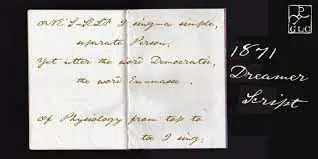 ONE'S-SELF I sing—a simple,
separate Person;
Yet utter the word Democratic,
the word En-masse.
Of Physiology from top to
toe I sing;
GLC
1871
Dreamer
Script